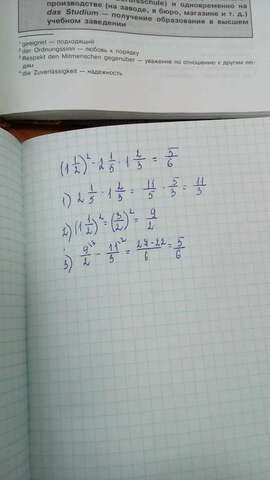 производстве (на заводе, в бюро, магазине и т. д.)
das Studium — получение образования в высшем
учебном заведении
geeignet — подходящий
der Ordnungssinn — любовь к порядку
Respekt den Mitmenschen gegenüber — уважение по отношению к другим лю-
дям
die Zuverlässigkeit — надежность
(1 1/2)² - 2 1/5 · 1 2/3 = 5/6
1) 2 1/5 · 1 2/3 = 11/5 · 5/3 = 11/3
2) (1 1/2)² = (3/2)² = 9/2
3) 9/2 - 11/3 = 27-22/6 = 5/6